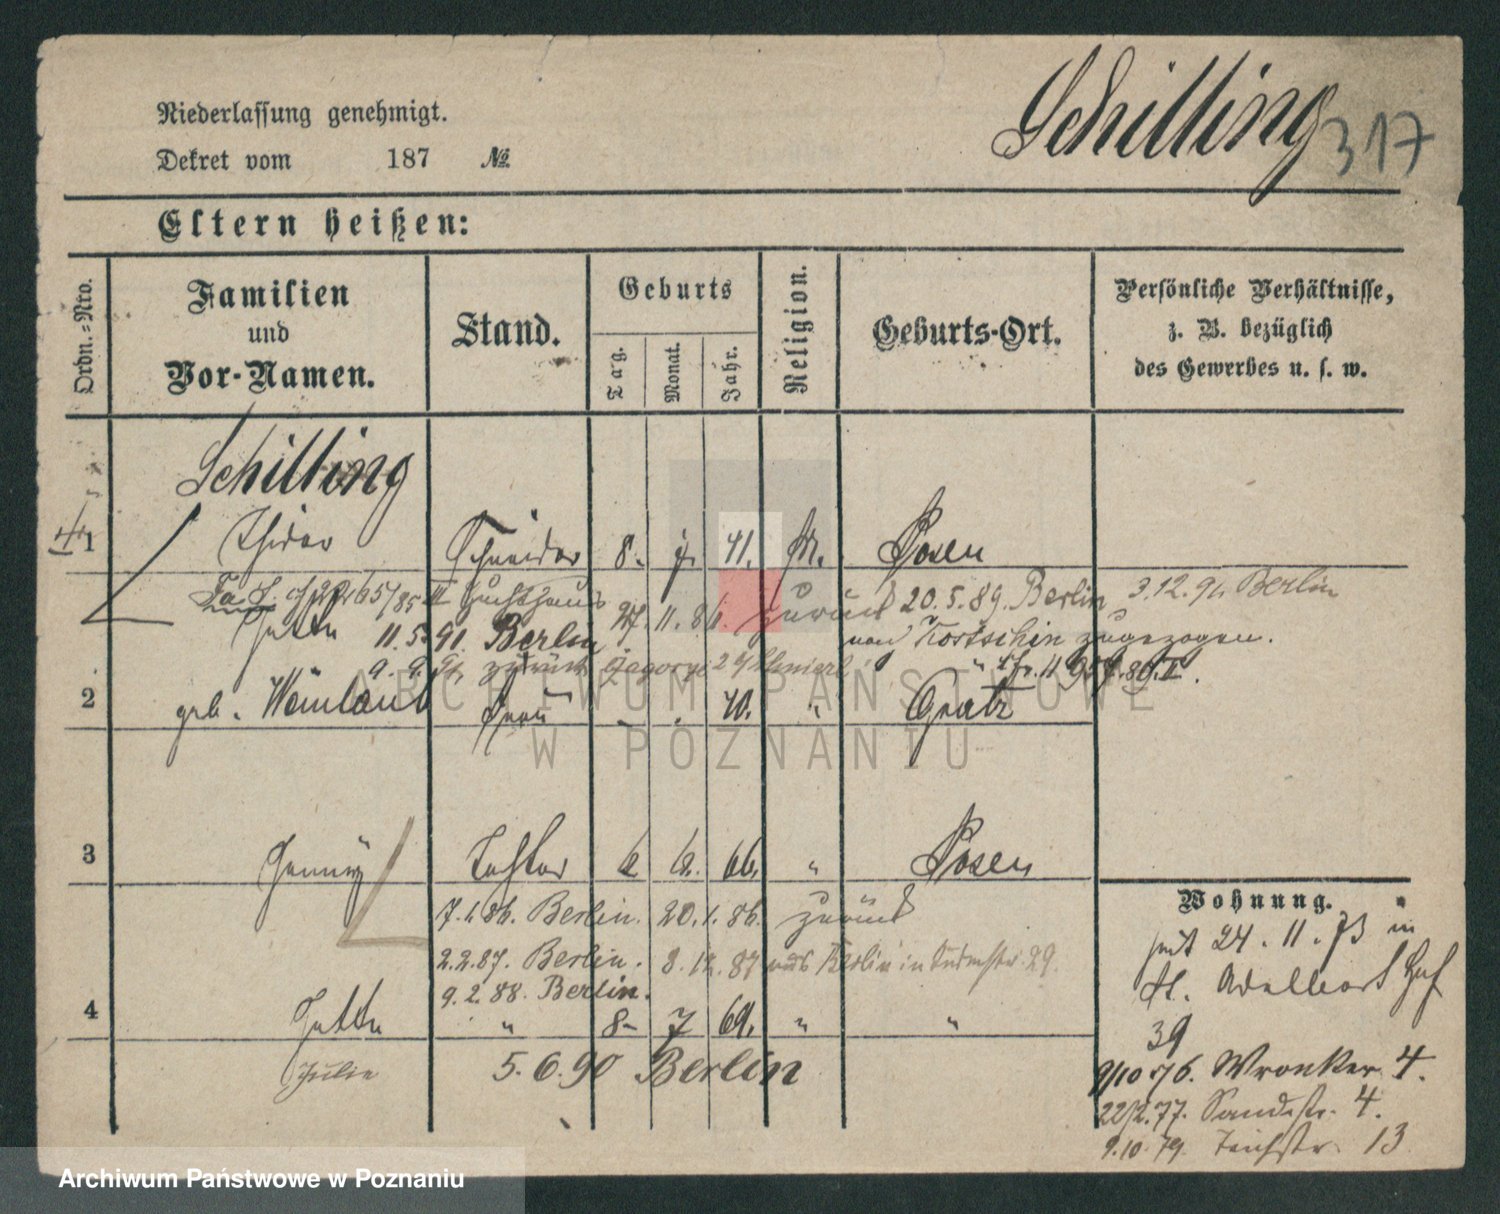 Schilling 317
Niederlassung genehmigt.
Dekret vom 187 №
Eltern heißen:
Ordn.-Nro.
Familien
und
Vor-Namen.
Stand.
Geburts
Tag.
Monat.
Jahr.
Religion.
Geburts-Ort.
Persönliche Verhältnisse,
z. B. bezüglich
des Gewerbes u. s. w.
Schilling
1 Isidor Schneider 8. 7. 41. M. Posen
zurück 20.5.89. Berlin 3.12.91. Berlin
Jette 11.5.91. Berlin 11. 86. von Kostschin zugezogen.
9. 9. 91. zurück
2 geb. Weinlaub Frau 40. " Gratz
3 Tochter 6 66. " Posen
7.1.86. Berlin. 20.1.86. zurück
2.2.87. Berlin. 8.12.87 aus Berlin 29.
9.2.88. Berlin.
4 Jette " 8. 7 69. " "
Julie 5.6.90 Berlin
Wohnung.
seit 24.11.73 in
St. Adalbert
39
9/10 76. Wronker 4.
22/2.77. Sandstr. 4.
9.10.79. Teichstr. 13
ARCHIWUM PAŃSTWOWE
W POZNANIU
Archiwum Państwowe w Poznaniu